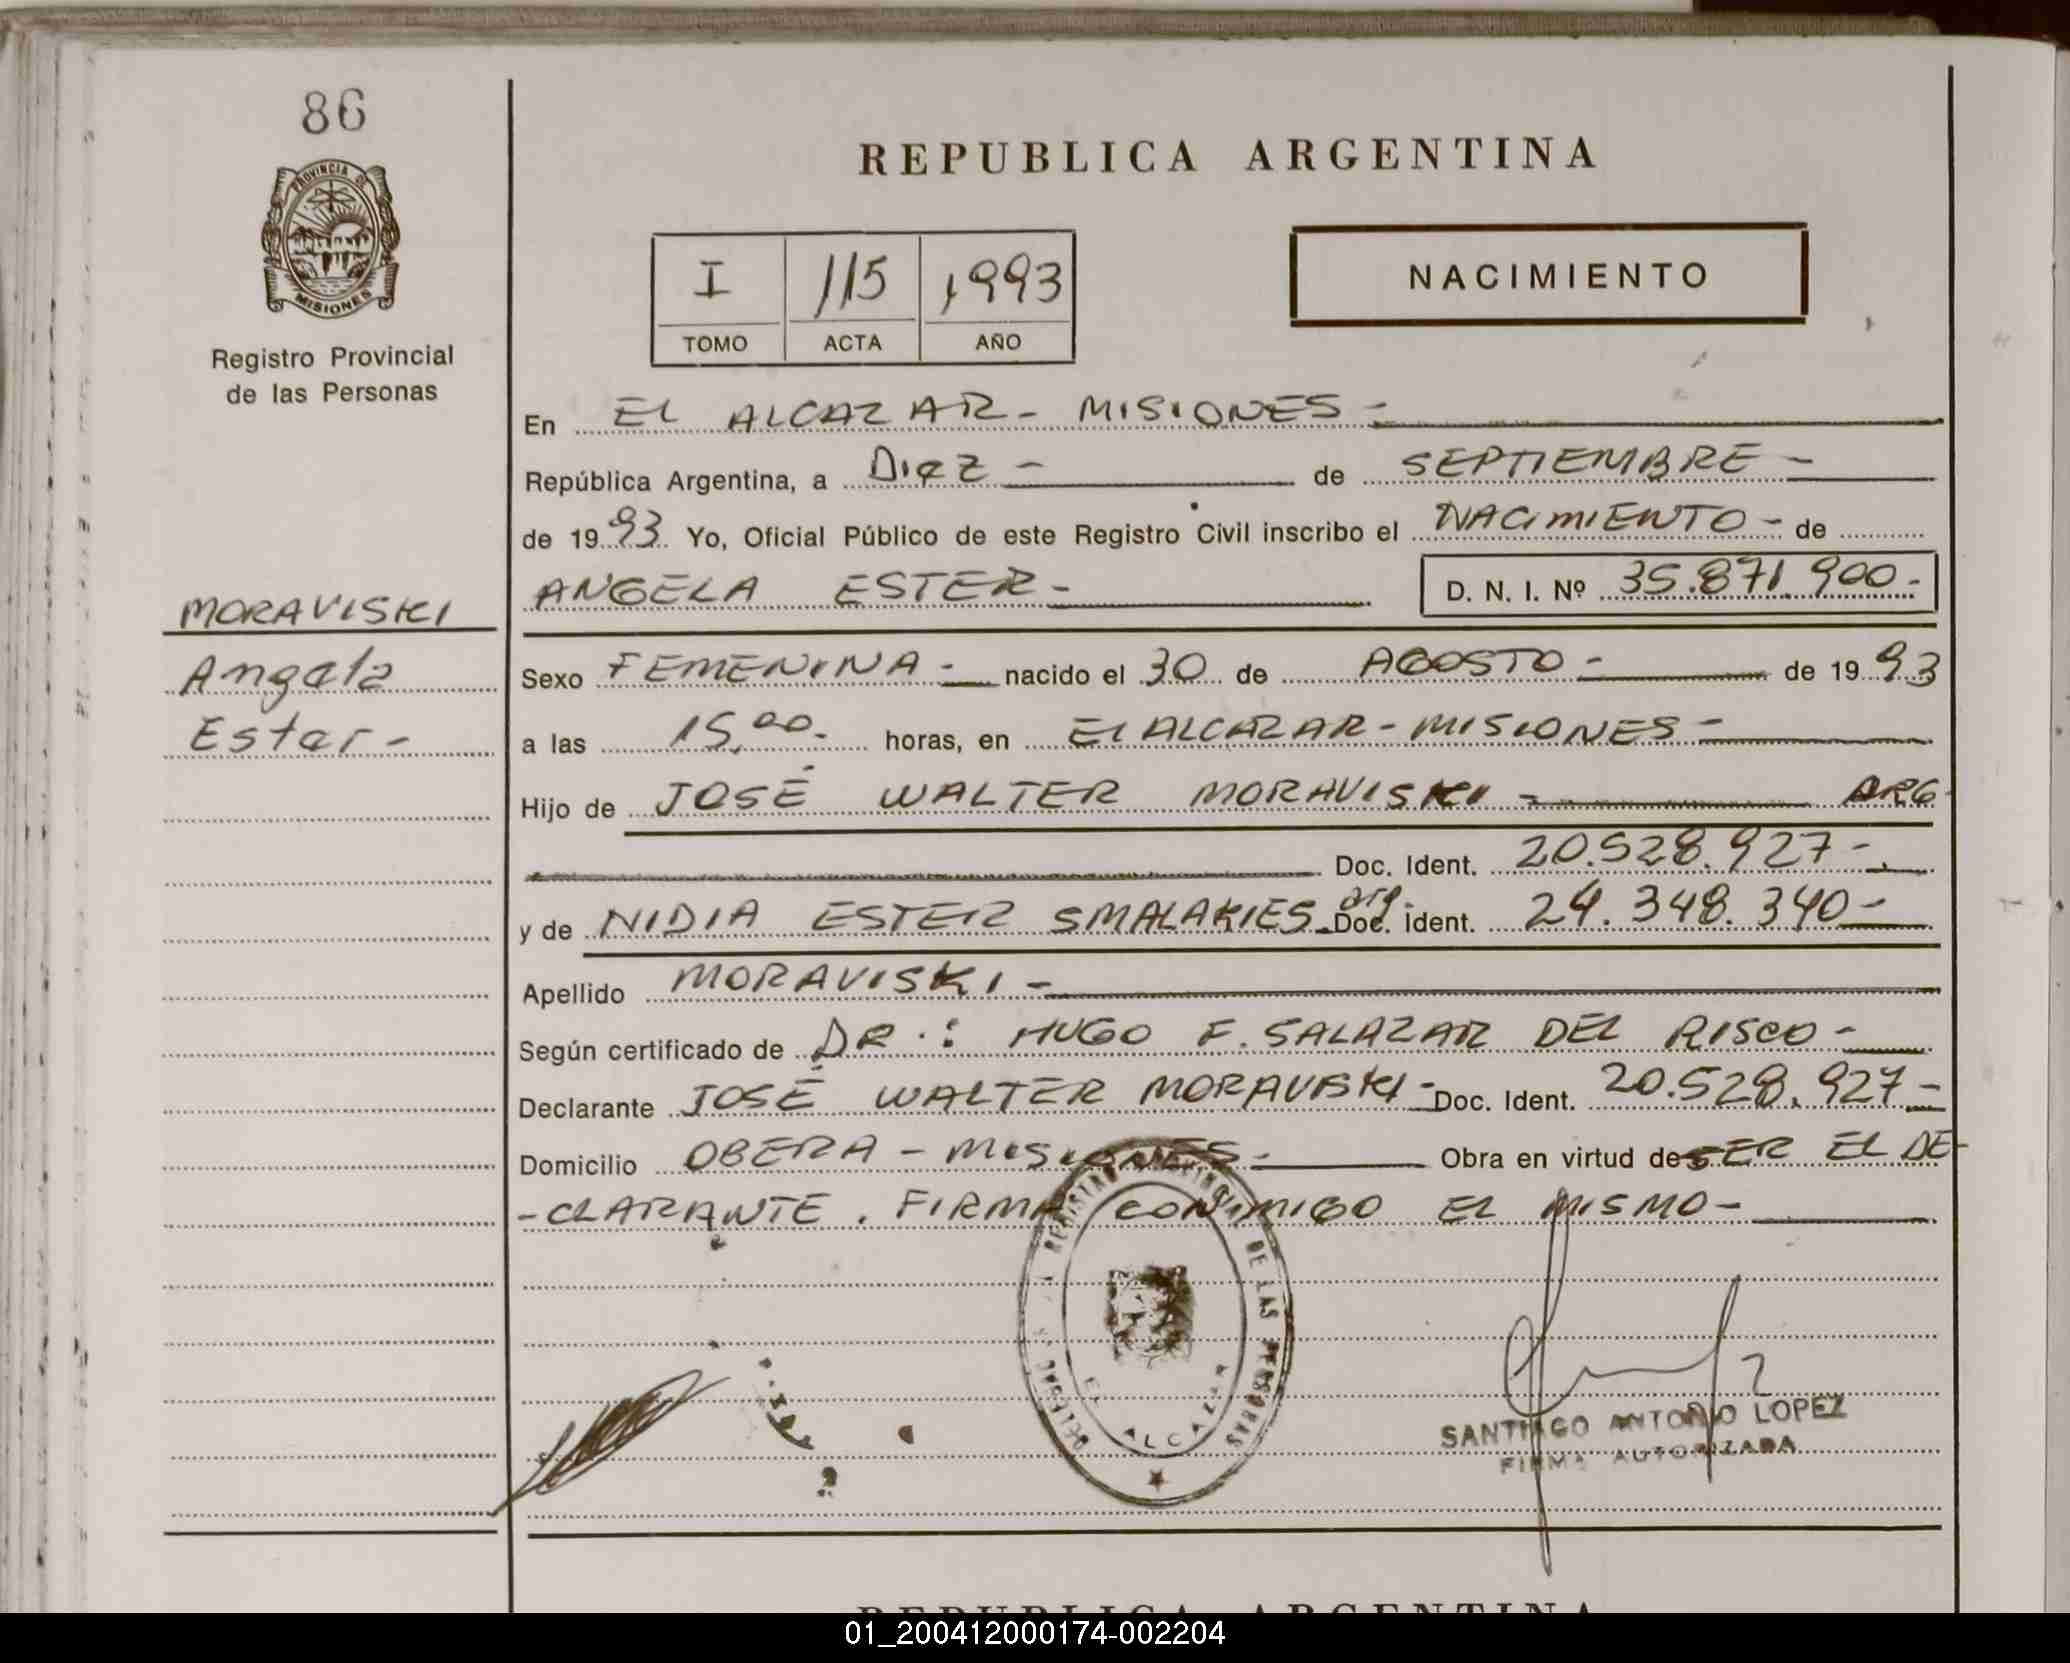 86
PROVINCIA DE
MISIONES
Registro Provincial
de las Personas
REPUBLICA ARGENTINA
I 115 1993
TOMO ACTA AÑO
NACIMIENTO
En EL ALCAZAR - MISIONES -
República Argentina, a Diez - de SEPTIEMBRE -
de 1993 Yo, Oficial Público de este Registro Civil inscribo el NACIMIENTO - de
ANGELA ESTER - D. N. I. Nº 35.871.900.-
MORAVISKI
Angela
Ester -
Sexo FEMENINA - nacido el 30 de AGOSTO - de 1993
a las 15,00.- horas, en El ALCAZAR - MISIONES -
Hijo de JOSÉ WALTER MORAVISKI - ARG.
Doc. Ident. 20.528.927 -
y de NIDIA ESTER SMALAKIES. arg. Doc. Ident. 24.348.340 -
Apellido MORAVISKI -
Según certificado de DR.: HUGO F. SALAZAR DEL RISCO -
Declarante JOSÉ WALTER MORAVISKI - Doc. Ident. 20.528.927 -
Domicilio OBERA - MISIONES - Obra en virtud de SER EL DE-
-CLARANTE. FIRMA CONMIGO EL MISMO -
REGISTRO PROVINCIAL DE LAS PERSONAS
EL ALCAZAR
SANTIAGO ANTONIO LOPEZ
FIRMA AUTORIZADA
REPUBLICA ARGENTINA
01_200412000174-002204